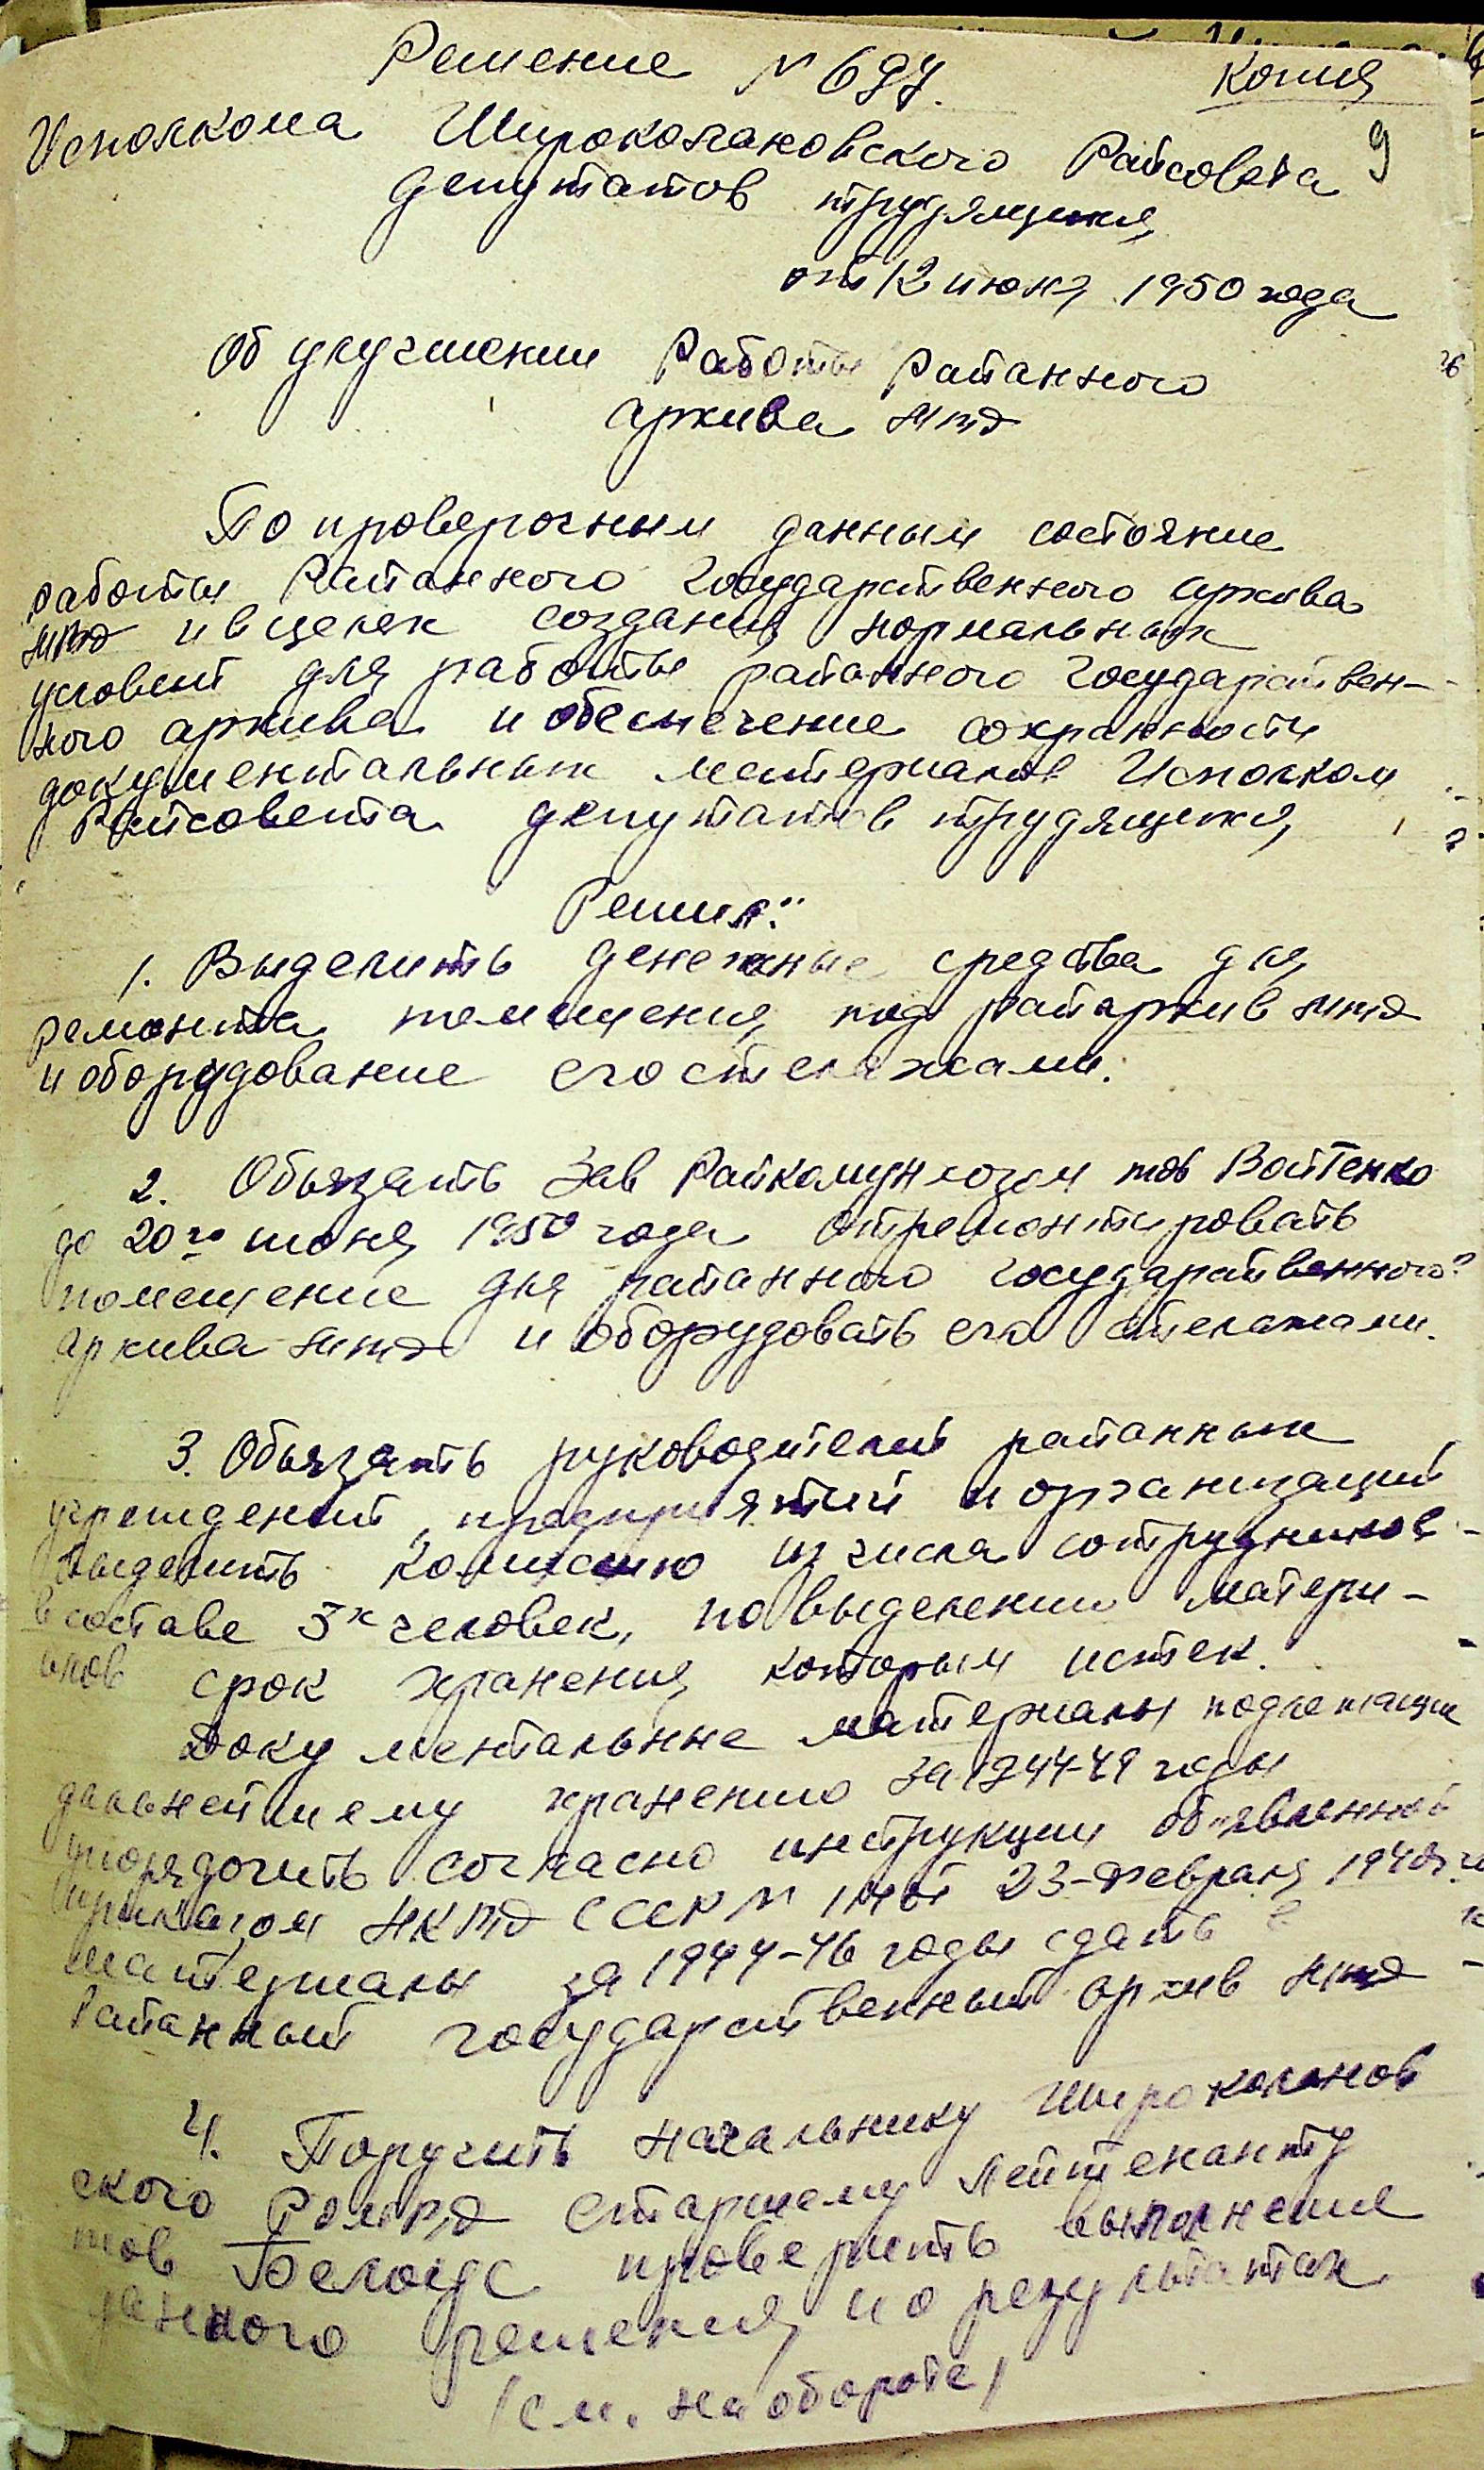 Решение № 697.
Копия
9
Исполкома Широколановского Райсовета
депутатов трудящихся
от 12 июня 1950 года
Об улучшении Работы Районного
архива МВД
По проверочным данным состояние
работы Районного Государственного архива
МВД и в целях создания нормальных
условий для работы районного государствен-
ного архива и обеспечение сохранности
документальных материалов Исполком
Райсовета депутатов трудящихся
Решил:
1. Выделить денежные средства для
ремонта помещения под райархив МВД
и оборудование его стелажами.
2. Обьязать Зав Райкомунхозом тов Войтенко
до 20го июня 1950 года отремонтировать
помещение для районного государственного
архива МВД и оборудовать его стелажами.
3. Обьязать руководителей районных
учреждений, предприятий и организаций
выделить комиссию из числа сотрудников
в составе 3х человек, по выделении матери-
алов срок хранения которым истек.
Документальные материалы подлежащие
дальнейшему хранению за 1944-49 годы
упорядочить согласно инструкции об"явленной
приказом НКВД СССР № от 23-февраля
материалы за 1944-46 годы сдать в
Районный государственный архив МВД
4. Поручить начальнику Широколанов
ского РОМВД старшему лейтенанту
тов Белоус проверить выполнение
данного решения, и о результатах
/см. на обороте/